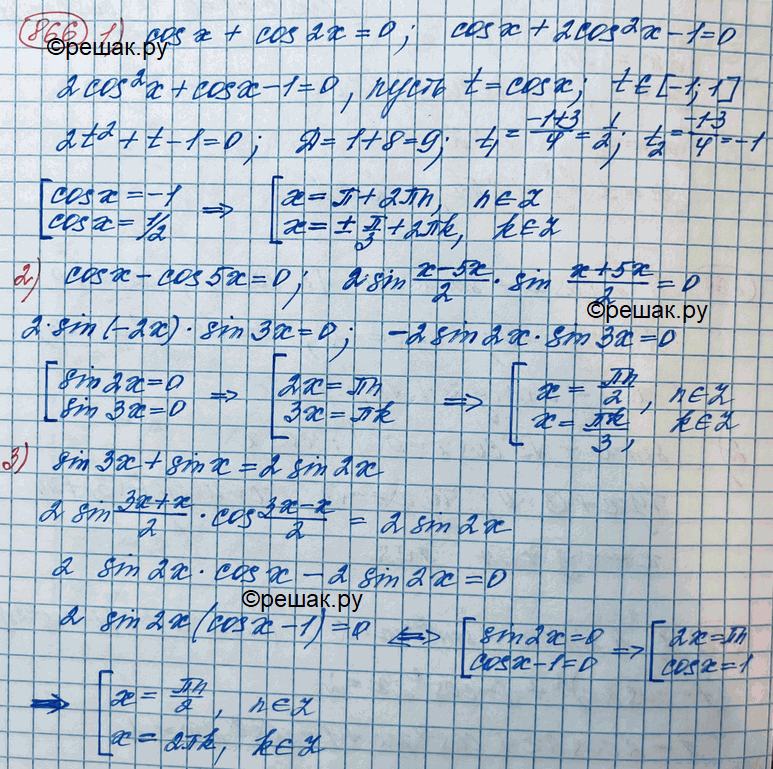 866 1) cos x + cos 2x = 0; cos x + 2cos²x – 1 = 0
©решак.ру
2cos²x + cos x – 1 = 0, пусть t = cos x; t ∈ [-1; 1]
2t² + t – 1 = 0; D = 1 + 8 = 9; t₁ = (-1+3)/4 = 1/2; t₂ = (-1-3)/4 = -1
[cos x = -1 ⇒ [x = π + 2πn, n ∈ Z
cos x = 1/2 x = ± π/3 + 2πk, k ∈ Z
2) cos x – cos 5x = 0; 2·sin (x-5x)/2 · sin (x+5x)/2 = 0
©решак.ру
2·sin(-2x)·sin 3x = 0; -2 sin 2x·sin 3x = 0
[sin 2x = 0 ⇒ [2x = πn ⇒ [x = πn/2, n ∈ Z
sin 3x = 0 3x = πk x = πk/3, k ∈ Z
3) sin 3x + sin x = 2 sin 2x
2 sin (3x+x)/2 · cos (3x-x)/2 = 2 sin 2x
2 sin 2x · cos x – 2 sin 2x = 0
©решак.ру
2 sin 2x (cos x – 1) = 0 ⇔ [sin 2x = 0 ⇒ [2x = πn
cos x – 1 = 0 cos x = 1
⇒ [x = πn/2, n ∈ Z
x = 2πk, k ∈ Z